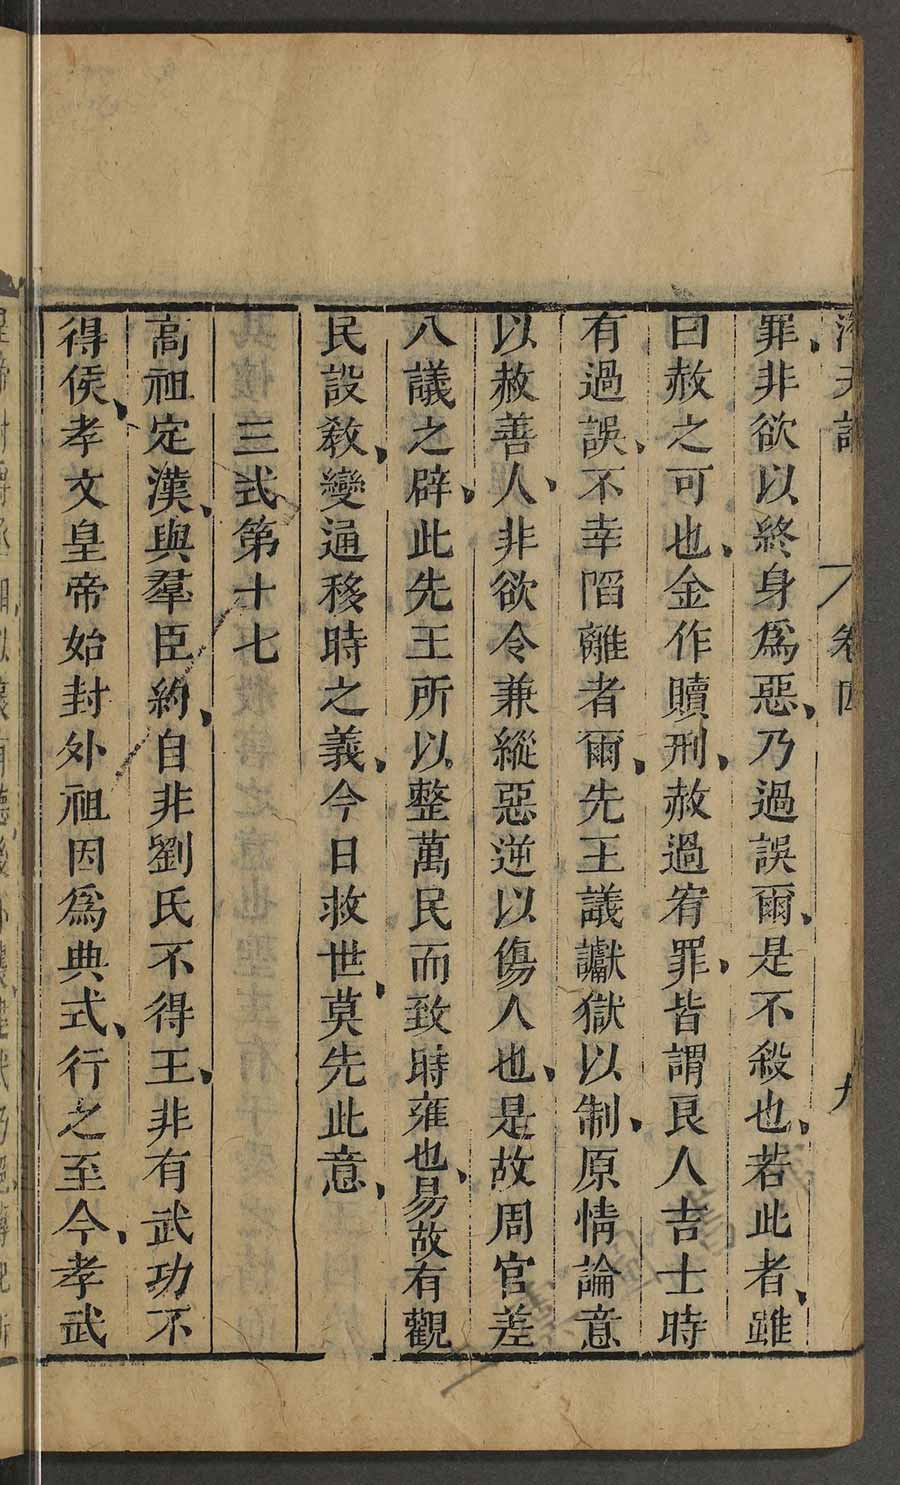 潛夫論 卷四 九
罪非欲以終身爲惡乃過誤爾是不殺也若此者雖
曰赦之可也金作贖刑赦過宥罪皆謂良人吉士時
有過誤不幸陷離者爾先王議讞獄以制原情論意
以赦善人非欲令兼縱惡逆以傷人也是故周官差
八議之辟此先王所以整萬民而致時雍也易故有觀
民設敎變通移時之義今日救世莫先此意
三式第十七
高祖定漢與羣臣約自非劉氏不得王非有武功不
得侯孝文皇帝始封外祖因爲典式行之至今孝武